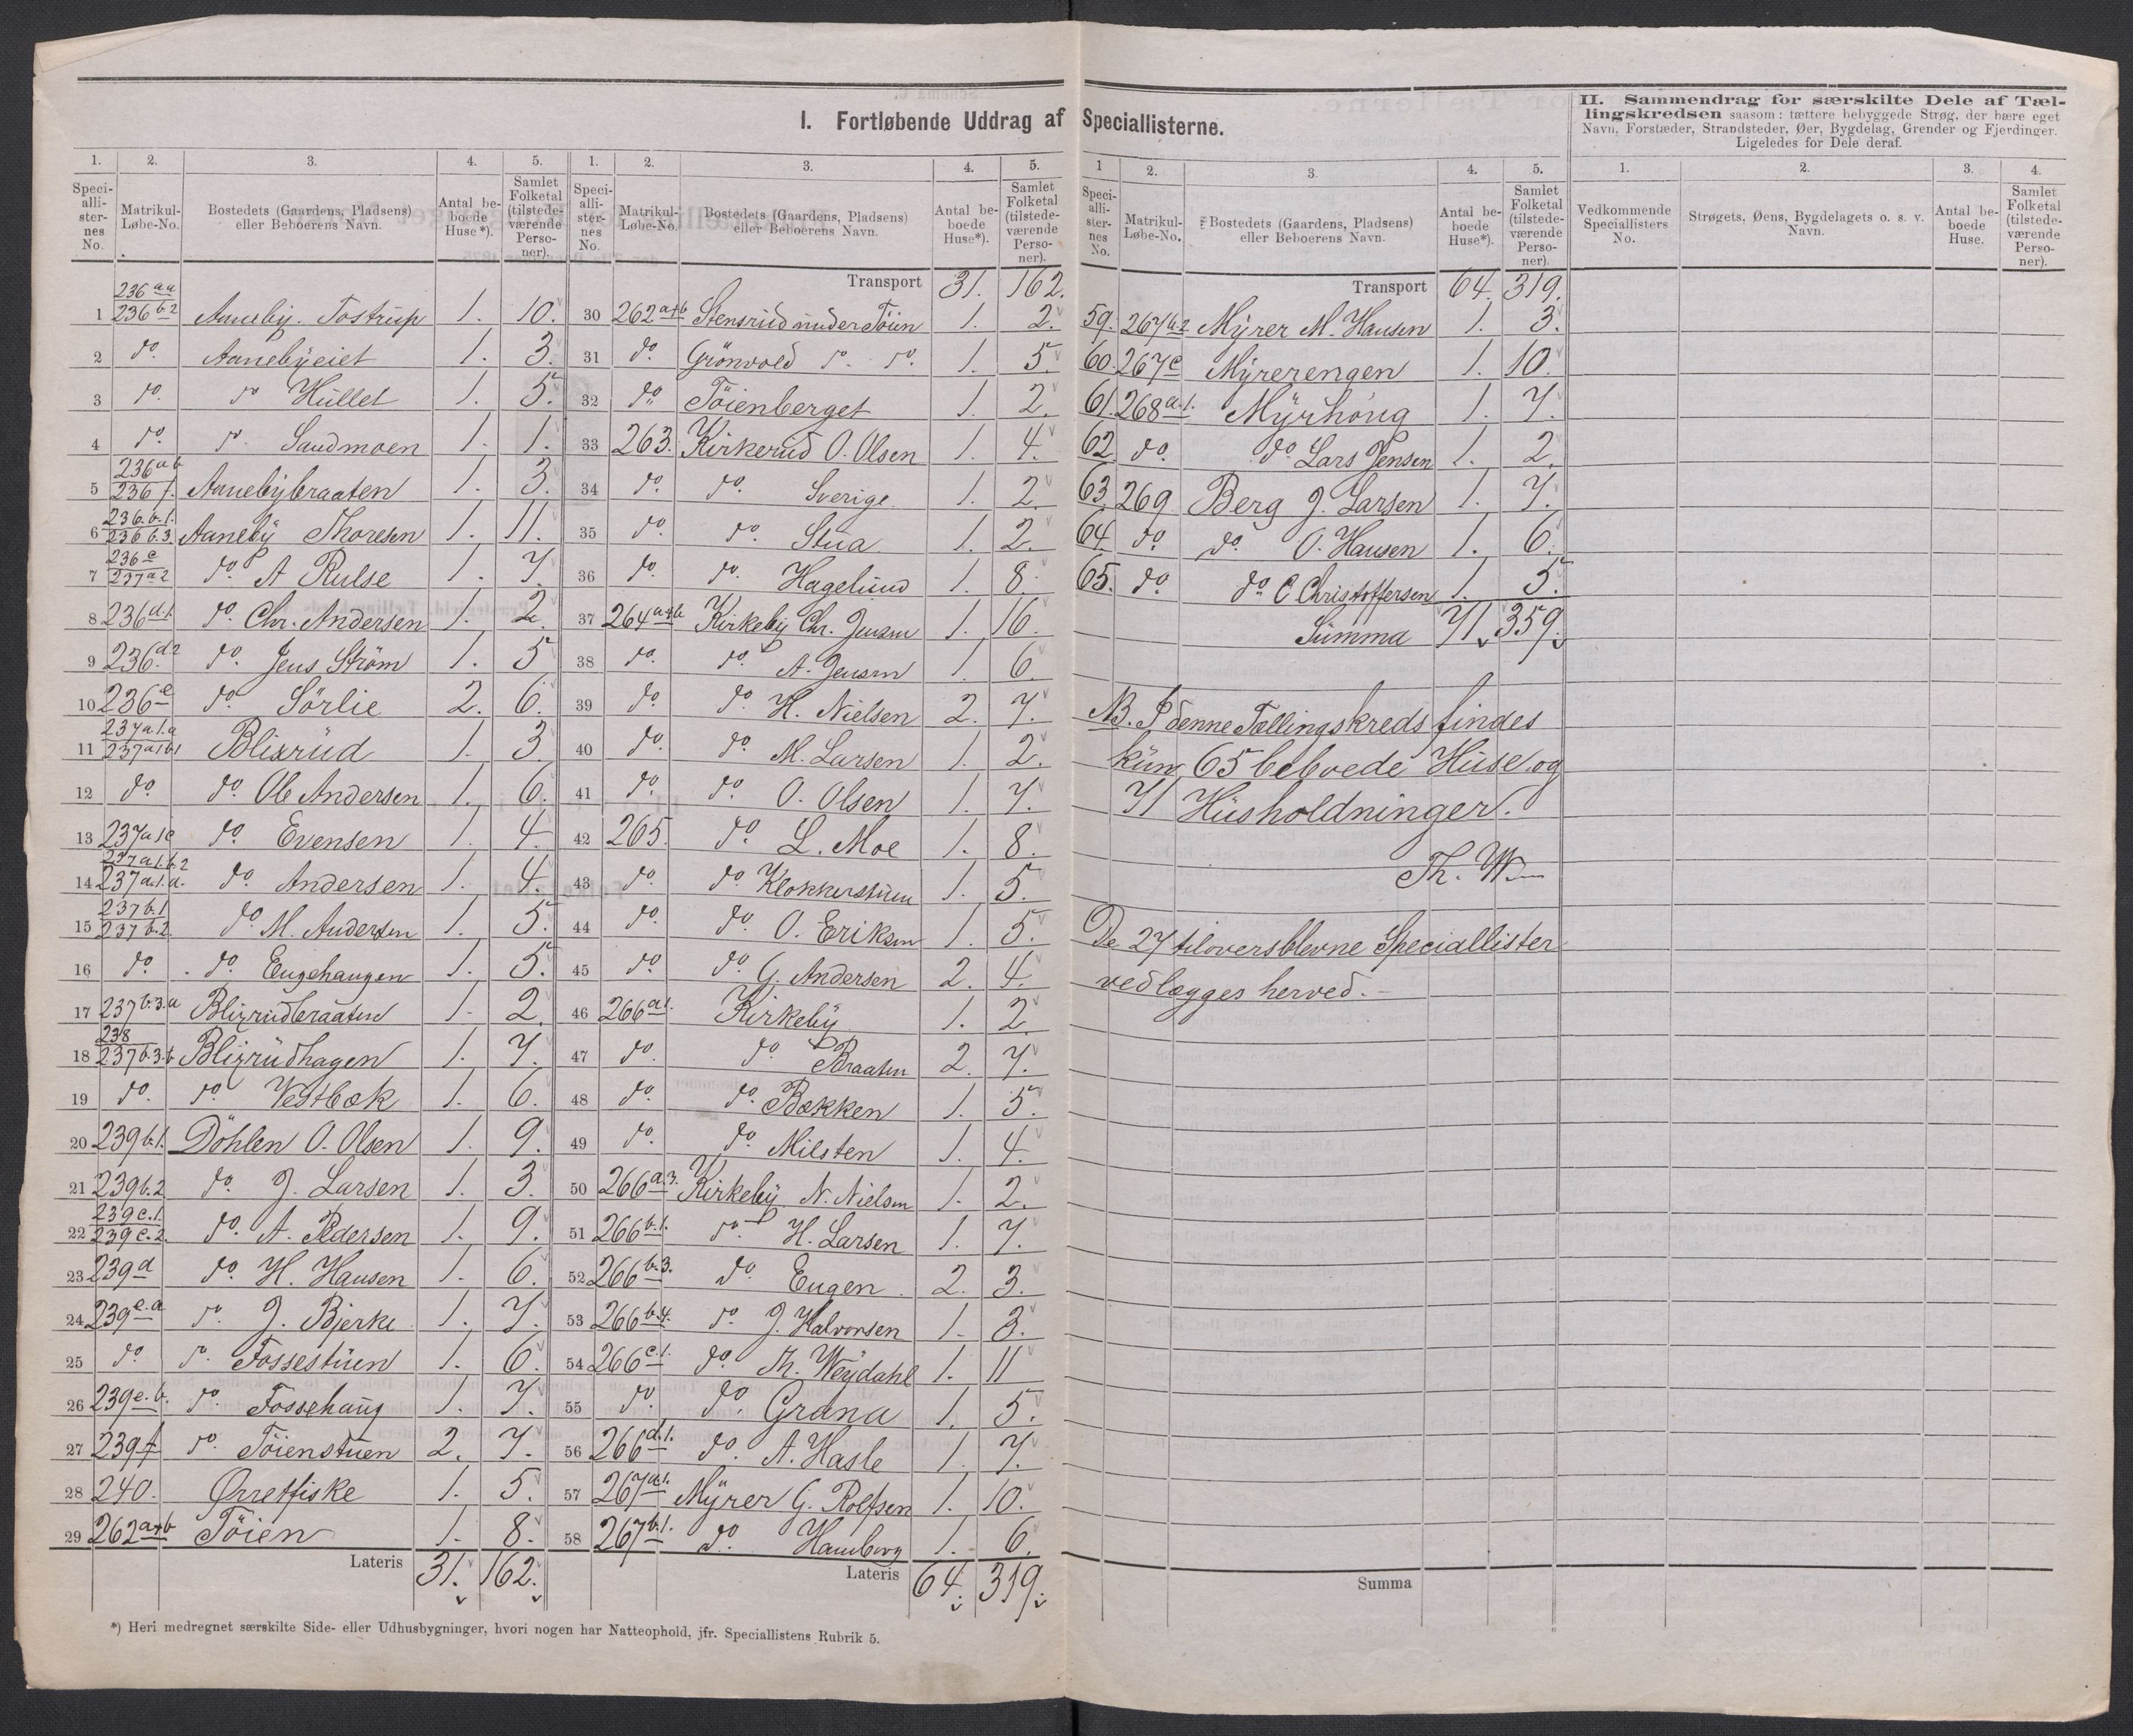 I. Fortløbende Uddrag af Speciallisterne.
II. Sammendrag for særskilte Dele af Tæl-
lingskredsen saasom: tættere bebyggede Strøg, der bære eget
Navn, Forstæder, Strandsteder, Øer, Bygdelag, Grender og Fjerdinger.
Ligeledes for Dele deraf.
1. 2. 3. 4. 5.
Speci-alli-ster-nes No. Matrikul-Løbe-No. Bostedets (Gaardens, Pladsens) eller Beboerens Navn. Antal be-boede Huse*). Samlet Folketal (tilstede-værende Perso-ner).
1 236 aa 236 b2 Aaneby. Tostrup 1. 10.
2 do. Aanebyeiet 1. 3.
3 do. do Hullet 1. 5.
4 do. do. Sandmoen 1. 1.
5 236 ab 236 f. Aanebybraaten 1. 3.
6 236.b.1. 236 b.3. Aaneby Thoresen 1. 11.
7 236 c 237 a2 do. A Rulse 1. 7.
8 236 d.1. do. Chr. Andersen 1. 2.
9 236 d2 do. Jens Ström 1. 5
10 236 e do. Sörlie 2. 6.
11 237 a.1.a 237 a1b1 Blixrud 1. 3
12 do. do. Ole Andersen 1. 6.
13 237 a1c do. Evensen 1. 4.
14 237 a.1.b.2 237 a.1.d. do. Andersen 1. 4.
15 237 b.1 237 b.2. do. M. Andersen 1. 5.
16 do. do. Engehaugen 1. 5.
17 237 b.3.a Blixrudbraaten 1. 2.
18 238 237 b.3.b Blixrudhagen 1. 7.
19 do. do. Vestbæk 1. 6.
20 239 b.1. Döhlen O. Olsen 1. 9.
21 239 b.2 do. J. Larsen 1. 3.
22 239 c.1. 239 c.2. do. A. Pedersen 1. 9.
23 239 d do. H. Hansen 1. 6.
24 239 e.a do. J. Bjerke 1. 7.
25 do. do. Fossestuen 1. 6.
26 239 e.b. do. Fossehaug 1. 7.
27 239 f do. Töienstuen 2. 7.
28 240. Ørretfiske 1. 5.
29 262 a+b Töien 1. 8.
Lateris 31. 162.
1. 2. 3. 4. 5.
Speci-alli-ster-nes No. Matrikul-Løbe-No. Bostedets (Gaardens, Pladsens) eller Beboerens Navn. Antal be-boede Huse*). Samlet Folketal (tilstede-værende Perso-ner).
Transport 31. 162.
30 262 a+b Stensrud under Töien 1. 2.
31 do. Grönvold do. do. 1. 5
32 do. Töienberget 1. 2.
33 263. Kirkerud O. Olsen 1. 4.
34 do. do. Sverige 1. 2.
35 do. do. Stua 1. 2.
36 do. do. Hagelund 1. 8.
37 264 a+b Kirkeby Chr. Jensen 1. 16.
38 do. do. A. Jensen 1. 6.
39 do. do. H. Nielsen 2. 7.
40 do. do. M. Larsen 1. 2.
41 do. do. O. Olsen 1. 7.
42 265. do. L. Moe 1. 8.
43 do. do. Klokkerstuen 1. 5.
44 do. do. O. Eriksen 1. 5.
45 do. do. G. Andersen 2. 4.
46 266 a1. Kirkeby 1. 2.
47 do. do. Braaten 2. 7.
48 do. do. Bækken 1. 5.
49 do. do. Milsten 1. 4.
50 266 a.3. Kirkeby N. Nielsen 1. 2.
51 266 b.1. do. H. Larsen 1. 7.
52 266 b.3. do. Engen 2. 3.
53 266 b.4. do. J. Halvorsen 1. 3.
54 266 c.1. do. Th. Weydahl 1. 11
55 do. do. Grana 1. 5.
56 266 d.1. do. A. Hasle 1. 7.
57 267 a.1. Myrer G. Rolfsen 1. 10.
58 267 b.1. do. Hamborg 1. 6.
Lateris 64. 319.
*) Heri medregnet særskilte Side- eller Udhusbygninger, hvori nogen har Natteophold, jfr. Speciallistens Rubrik 5.
1 2. 3. 4. 5.
Speci-alli-ster-nes No. Matrikul-Løbe-No. Bostedets (Gaardens, Pladsens) eller Beboerens Navn. Antal be-boede Huse*). Samlet Folketal (tilstede-værende Perso-ner).
Transport 64. 319.
59. 267 b.2 Myrer M. Hansen 1. 3.
60. 267 c Myrerengen 1. 10.
61. 268 a.1. Myrhöug 1. 7.
62 do. do. Lars Jensen 1. 2.
63. 269 Berg J. Larsen 1. 7.
64. do. do. O. Hansen 1. 6.
65. do do C Christoffersen 1. 5.
Summa 71 359.
NB. I denne Tællingskreds findes
kun 65 beboede Huse og
71 Husholdninger.
Th. W.
De 27 tiloversblevne Speciallister
vedlægges herved.
Summa
1. 2. 3. 4.
Vedkommende Speciallisters No. Strøgets, Øens, Bygdelagets o. s. v. Navn. Antal be-boede Huse. Samlet Folketal (tilstede-værende Perso-ner).